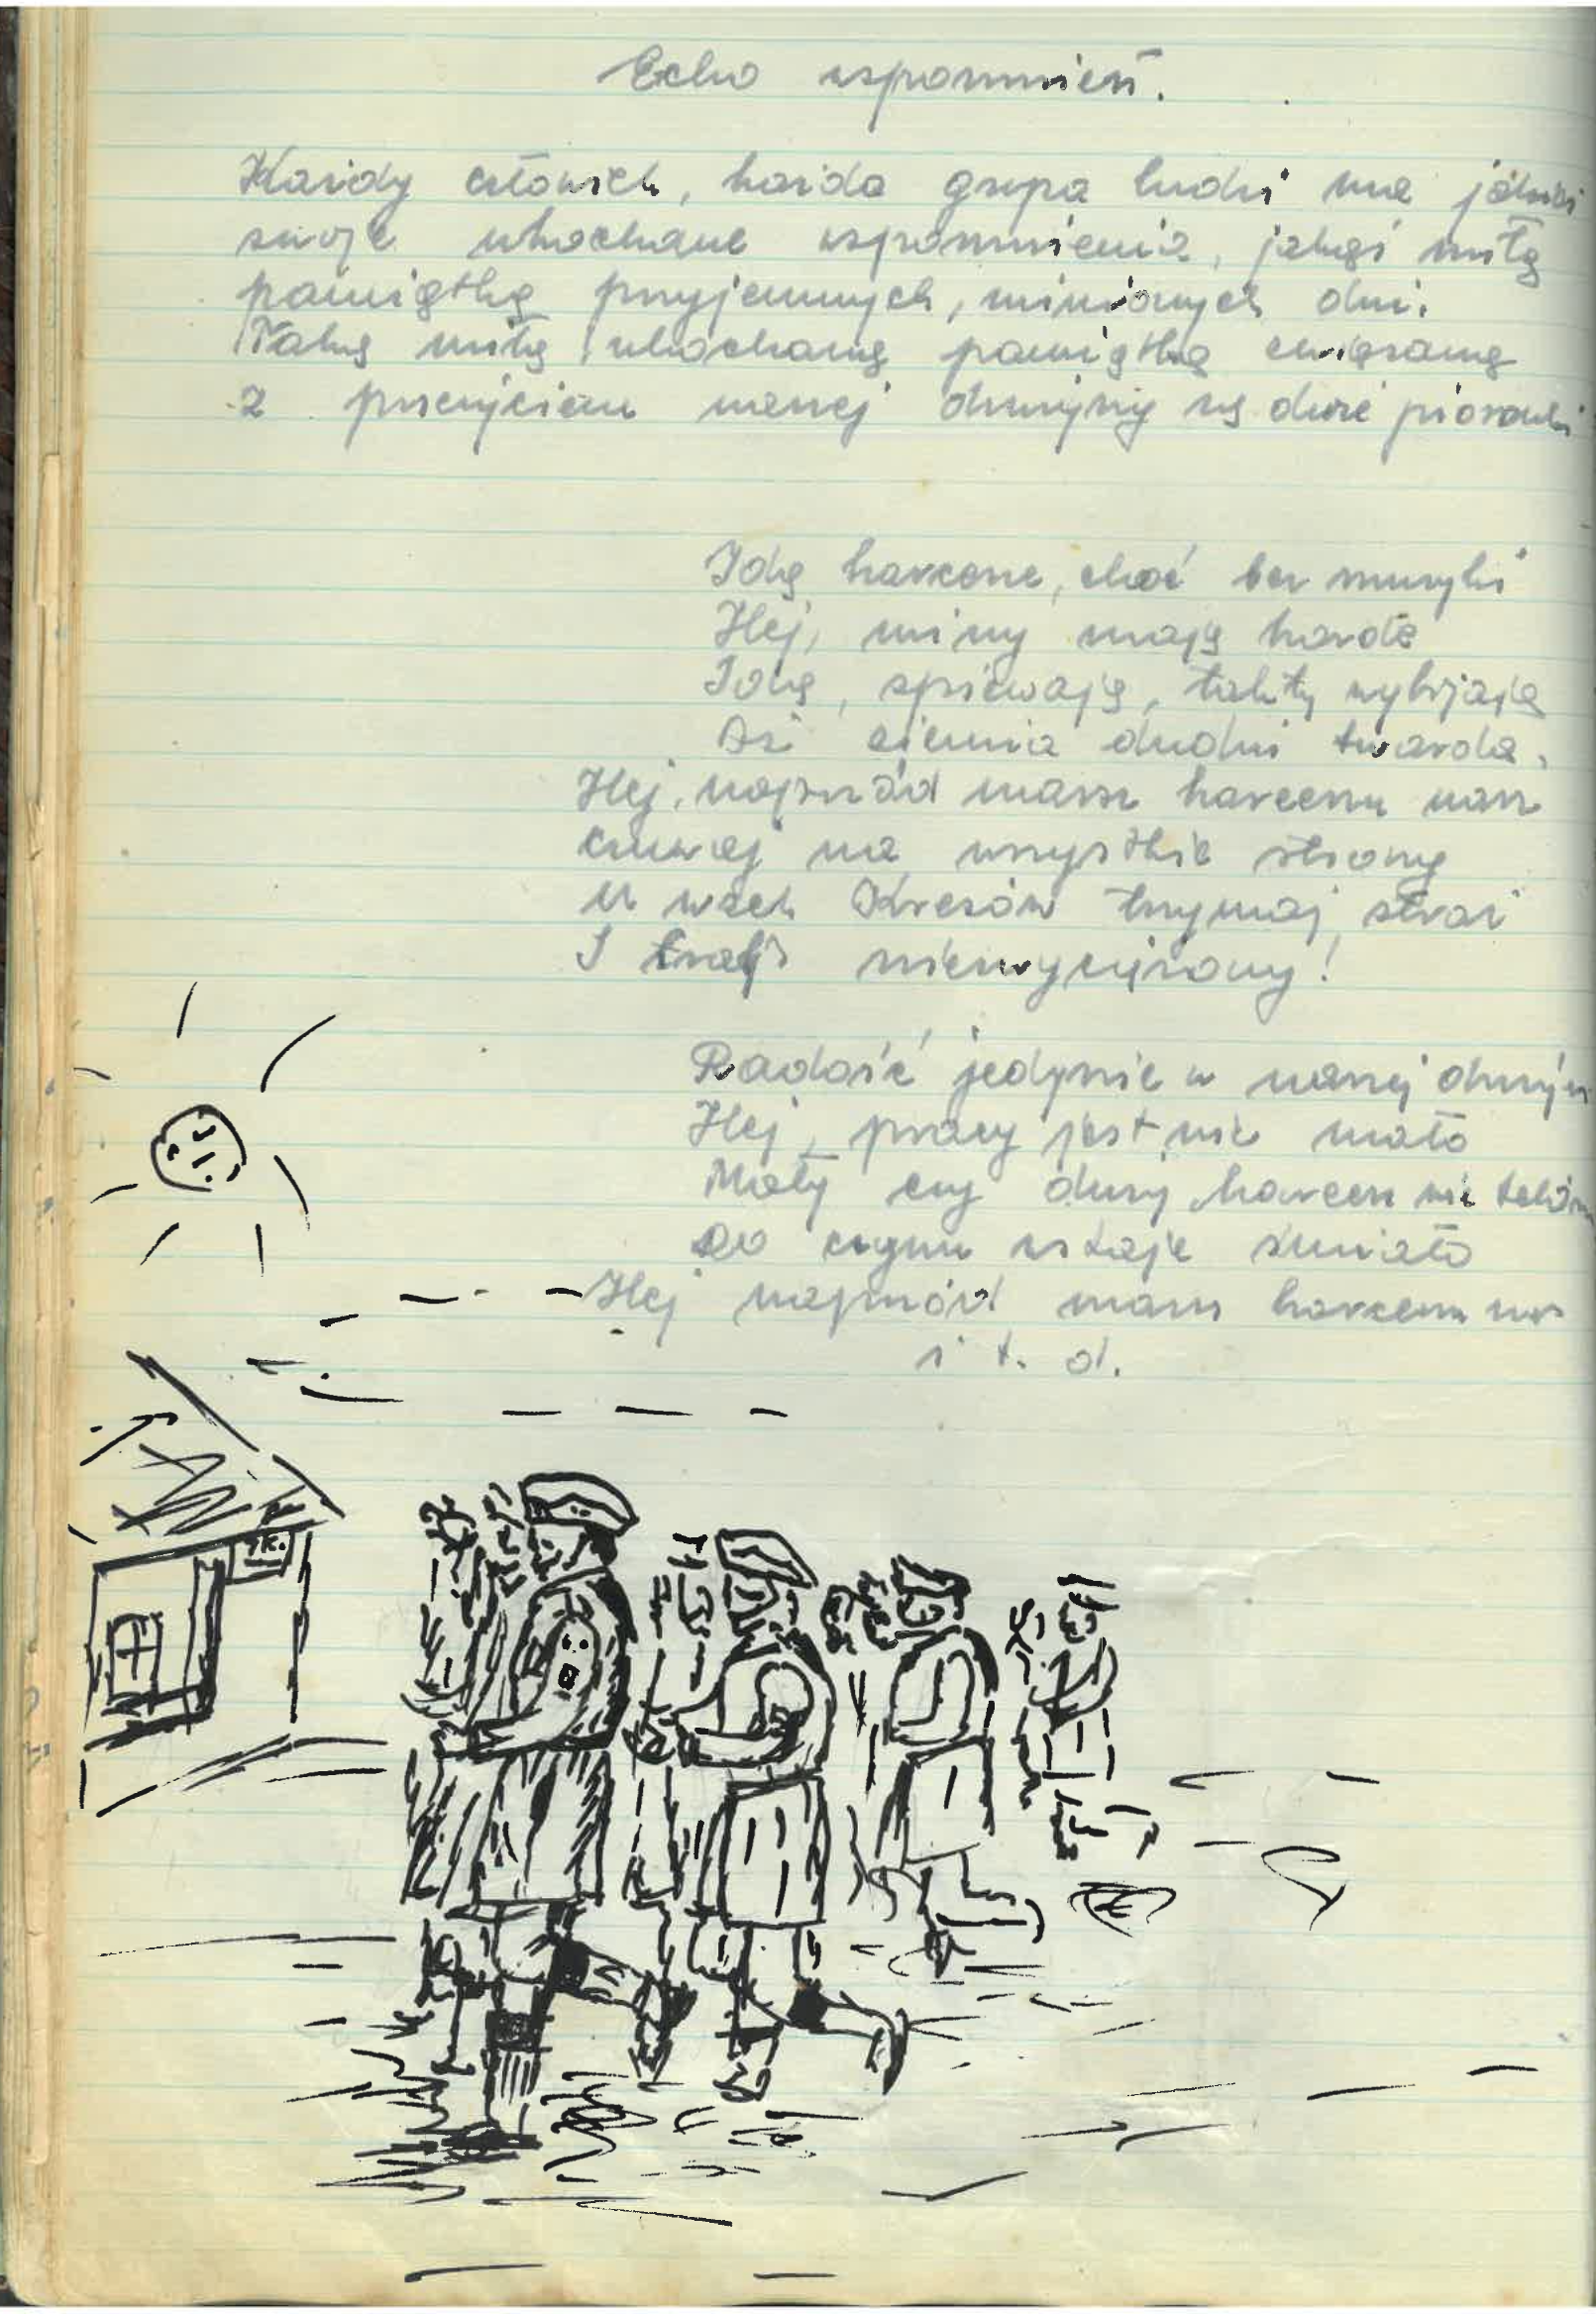 Echo wspomnień.
Każdy człowiek, każda grupa ludzi ma jakieś
swoje ukochane wspomnienia, jakąś miłą
pamiątkę przyjemnych, minionych dni.
Taką miłą ukochaną pamiątką związaną
z przeżyciem naszej drużyny są dwie piosenki
Idą harcerze, choć bez muzyki
Hej, miny mają harde
Idą, śpiewają, takty wybijają
Aż ziemia dudni twarda.
Hej, naprzód marsz harcerzu nasz
czuwaj na wszystkie strony
U wszch Kresów trzymaj straż
I niezwyciężony!
Radość jedynie w naszej druży
Hej, pracy jest nie mało
Mały czy duży harcerz nie
Do czynu wstaje śmiało
Hej naprzód marsz harcerzu nas
i t. d.